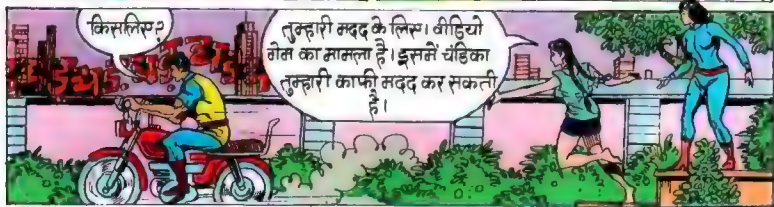 किसलिए?
तुम्हारी मदद के लिए। वीडियो
गेम का मामला है। इसमें चंडिका
तुम्हारी काफी मदद कर सकती
है।